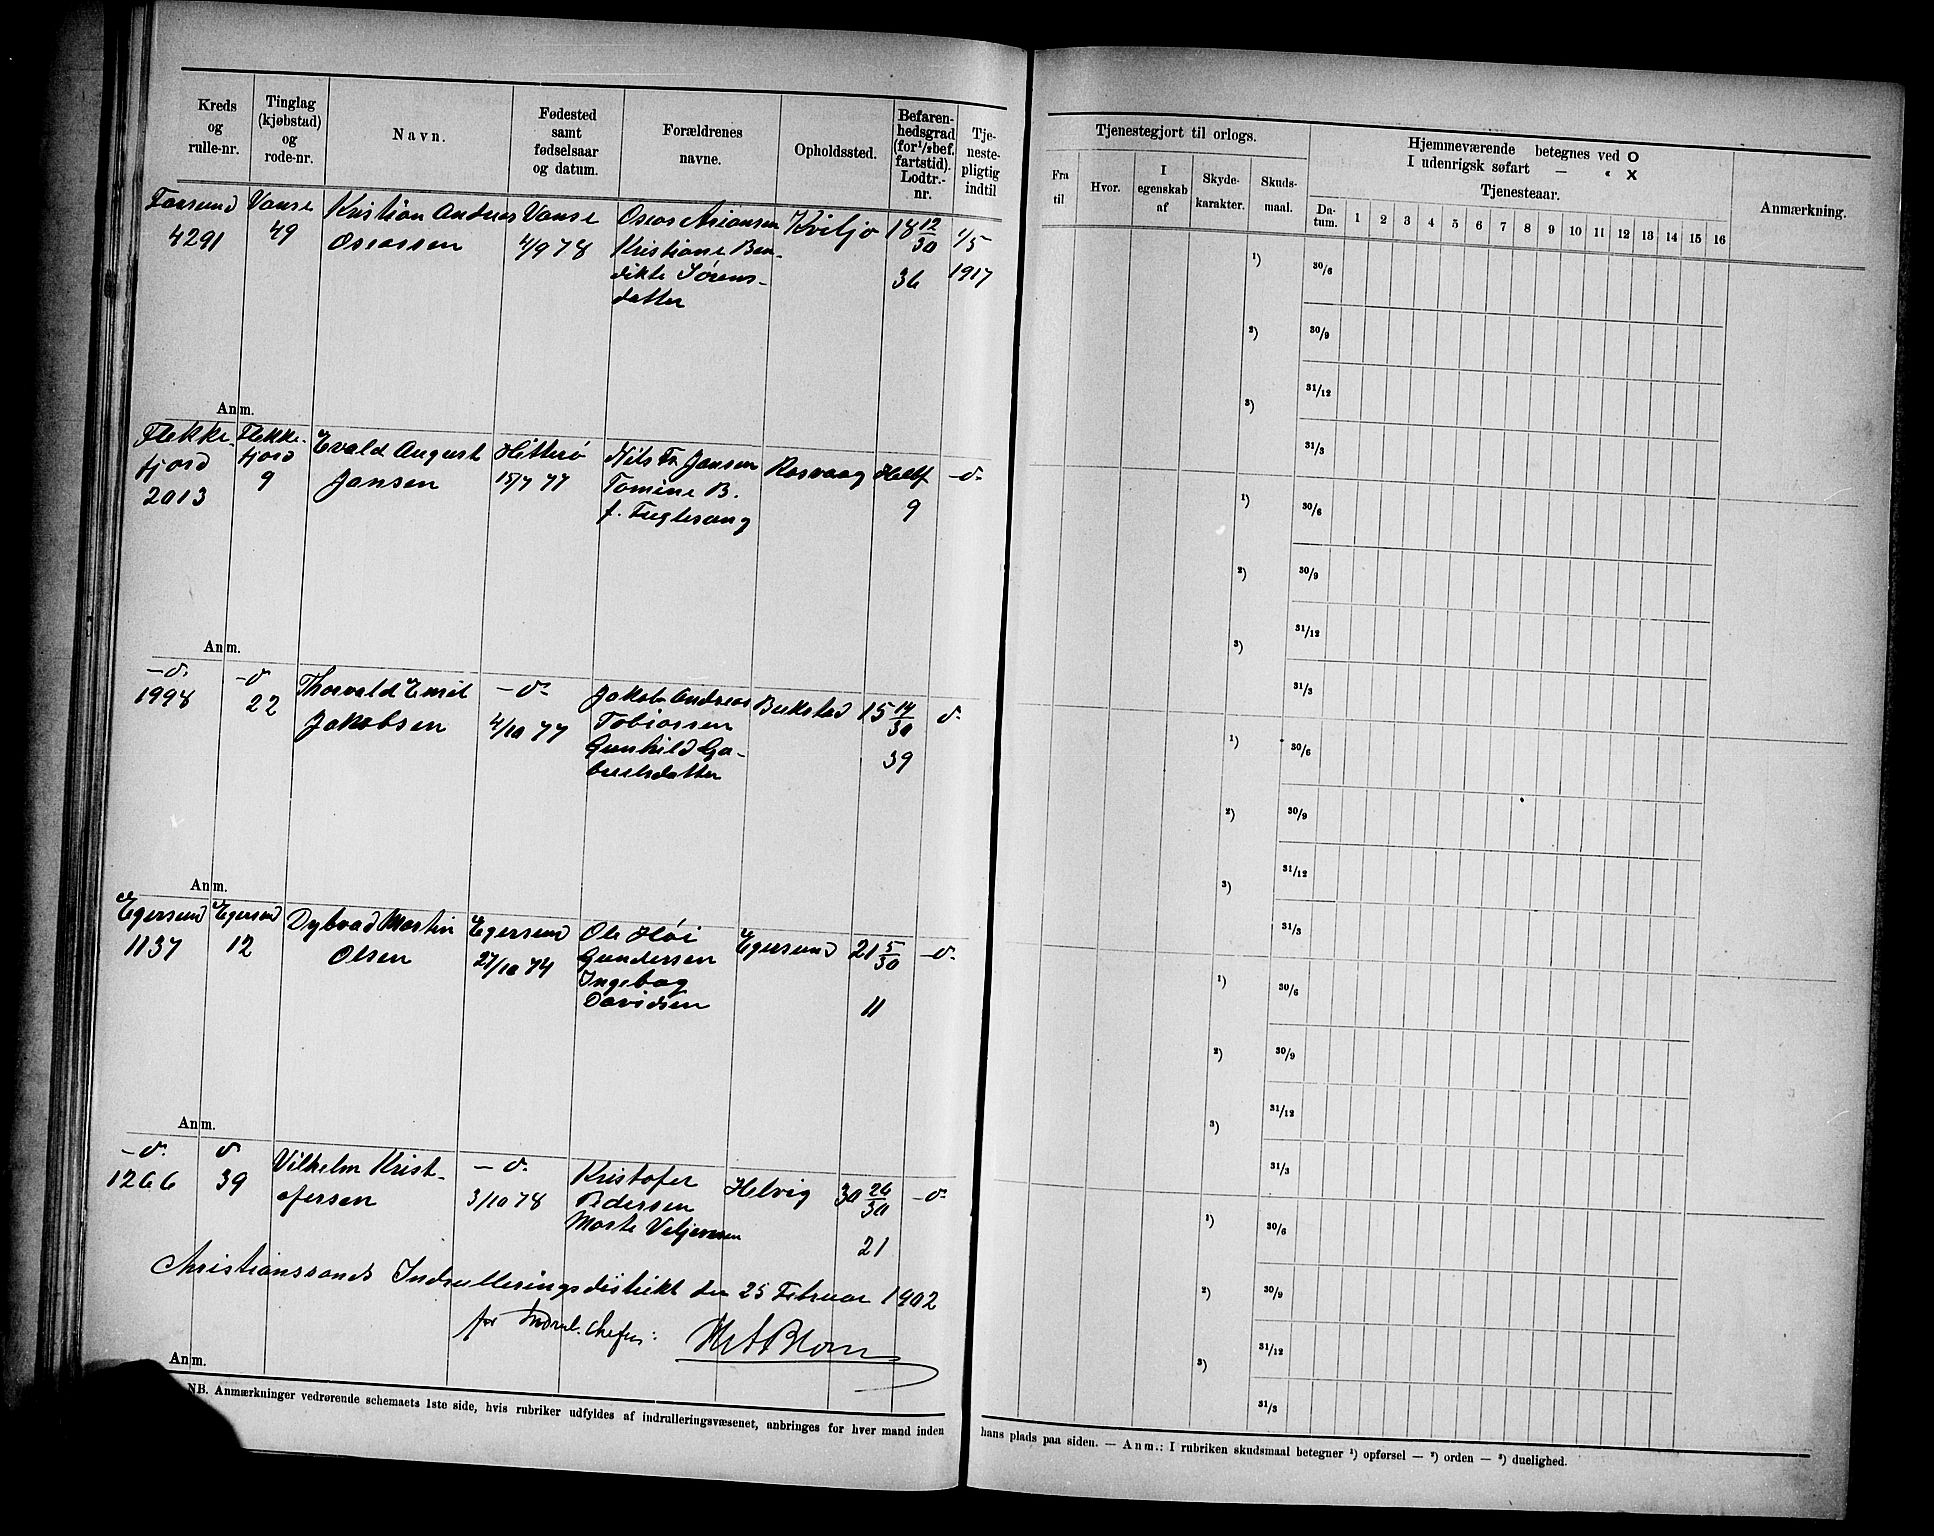 Kreds
og
rulle-nr.
Tinglag
(kjøbstad)
og
rode-nr.
Navn.
Fødested
samt
fødselsaar
og datum.
Forældrenes
navne.
Opholdssted.
Befaren-
hedsgrad
(for ½bef.
fartstid).
Lodtr.-
nr.
Tje-
neste-
pligtig
indtil
Farsund Vanse Kristian Andreas Vanse Oseas Asiansen Kviljo 18 12/30 1/5
4291 49 Oseassen 4/9 78 Kristiane Ben-
dikte Sørens- 36 1917
datter
Anm.
Flekke- Flekke- Evald August Hitterø Nils Fr. Jansen Rasvaag Helbf -d-
fjord fjord Jansen 15/7 77 Tomine B. 9
2013 9 f. Fuglesang
Anm.
-d- -d- Thorvald Emil -d- Jakob Andreas Bukstad 15 14/30 d-
1998 22 Jakobsen 4/10 77 Tobiassen
Gunhild Ga- 39
brielsdatter
Anm.
Egersund Egersund Dybvad Martin Egersund Ole Høi Egersund 21 5/30 -d-
1137 12 Olsen 27/10 74 Gundersen
Ingebog
Davidsen 11
Anm.
-d- d Vilhelm Krist- -d- Kristofer Helvig 30 26/30 -d-
1266 39 ofersen 3/10 78 Pedersen
Marte Veljersen
21
Christianssands Indrulleringsdistrikt den 25 Februar 1902
for Indrul. chefen:
Anm.
NB. Anmærkninger vedrørende schemaets 1ste side, hvis rubriker udfyldes af indrulleringsvæsenet, anbringes for hver mand inden
Tjenestegjort til orlogs.
Fra
til
Hvor.
I
egenskab
af
Skyde-
karakter.
Skuds-
maal.
Hjemmeværende betegnes ved O
I udenrigsk søfart — « X
Tjenesteaar.
Da-
tum. 1 2 3 4 5 6 7 8 9 10 11 12 13 14 15 16
Anmærkning.
¹) 30/6
²) 30/9
31/12
³)
31/3
¹) 30/6
²) 30/9
31/12
³)
31/3
¹) 30/6
²) 30/9
31/12
³)
31/3
¹) 30/6
²) 30/9
31/12
³)
31/3
¹) 30/6
²) 30/9
31/12
³)
31/3
hans plads paa siden. — Anm.: I rubriken skudsmaal betegner ¹) opførsel — ²) orden — ³) duelighed.